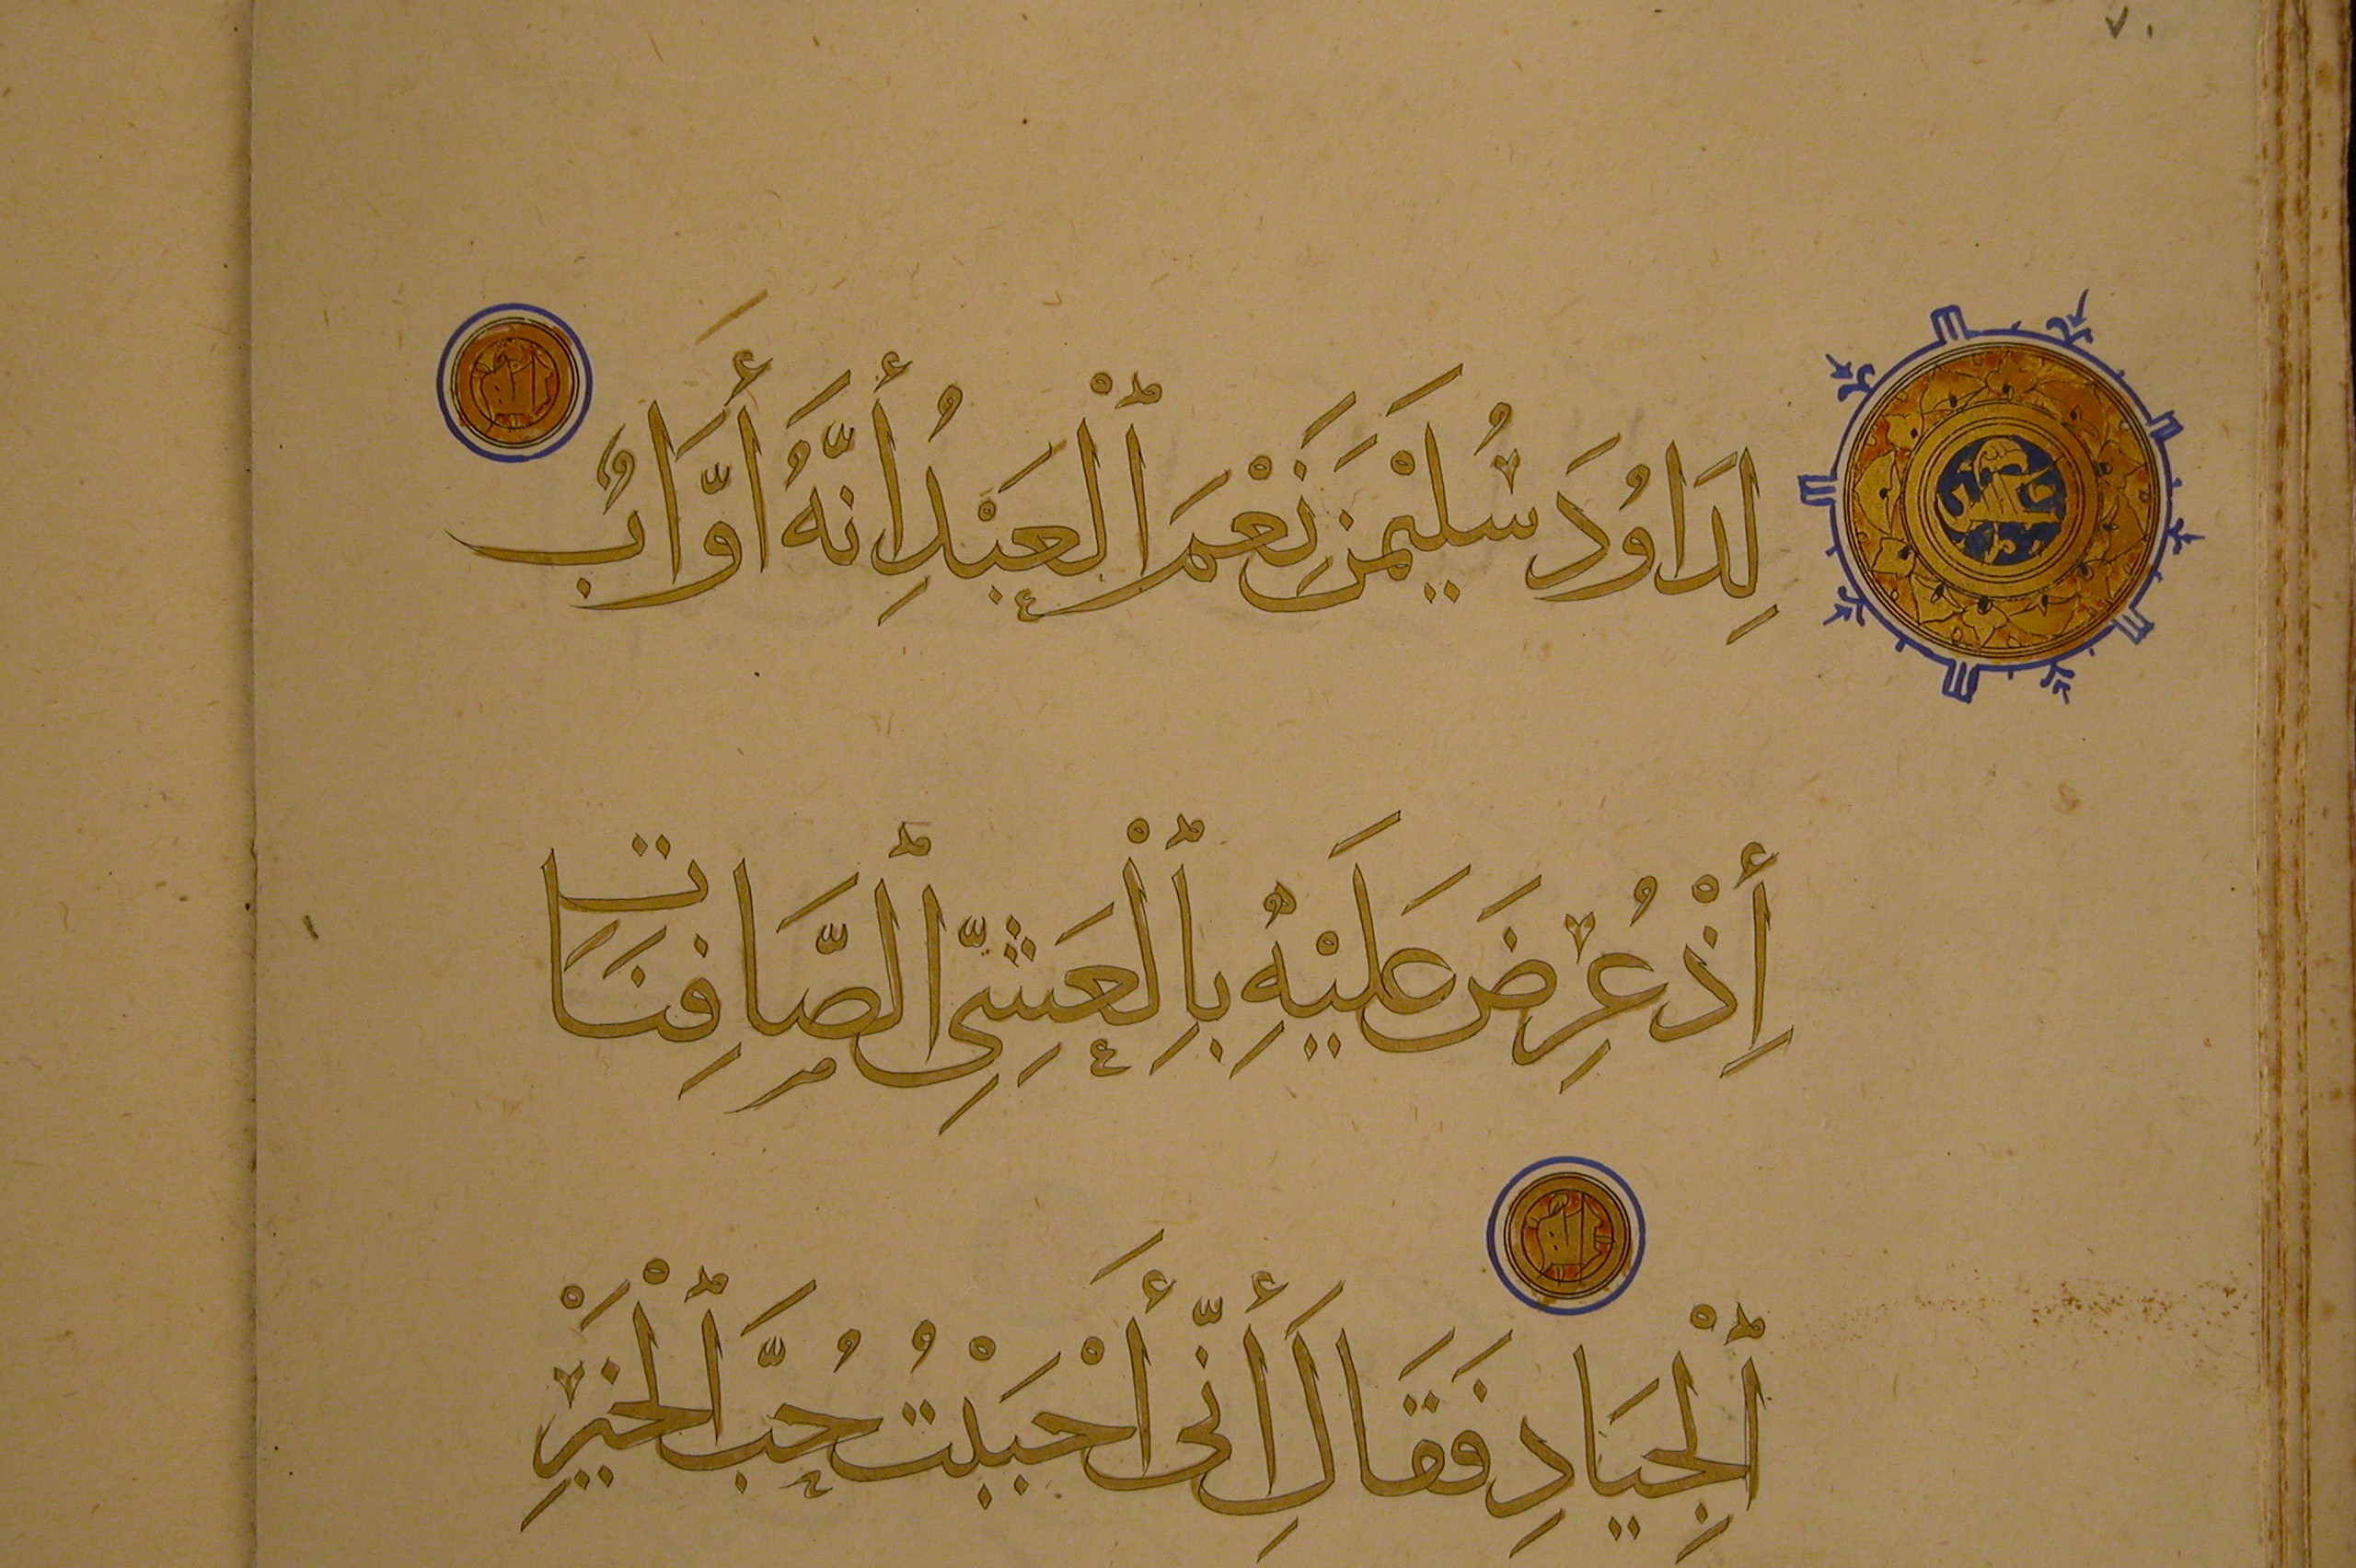 ٧٠
لِدَاوُدَ سُلَيْمَٰنَ نِعْمَ ٱلْعَبْدُ إِنَّهُ أَوَّابٌ
إِذْ عُرِضَ عَلَيْهِ بِٱلْعَشِىِّ ٱلصَّافِنَات
ٱلْجِيَادِ فَقَالَ إِنِّى أَحْبَبْتُ حُبَّ ٱلْخَيْرِ